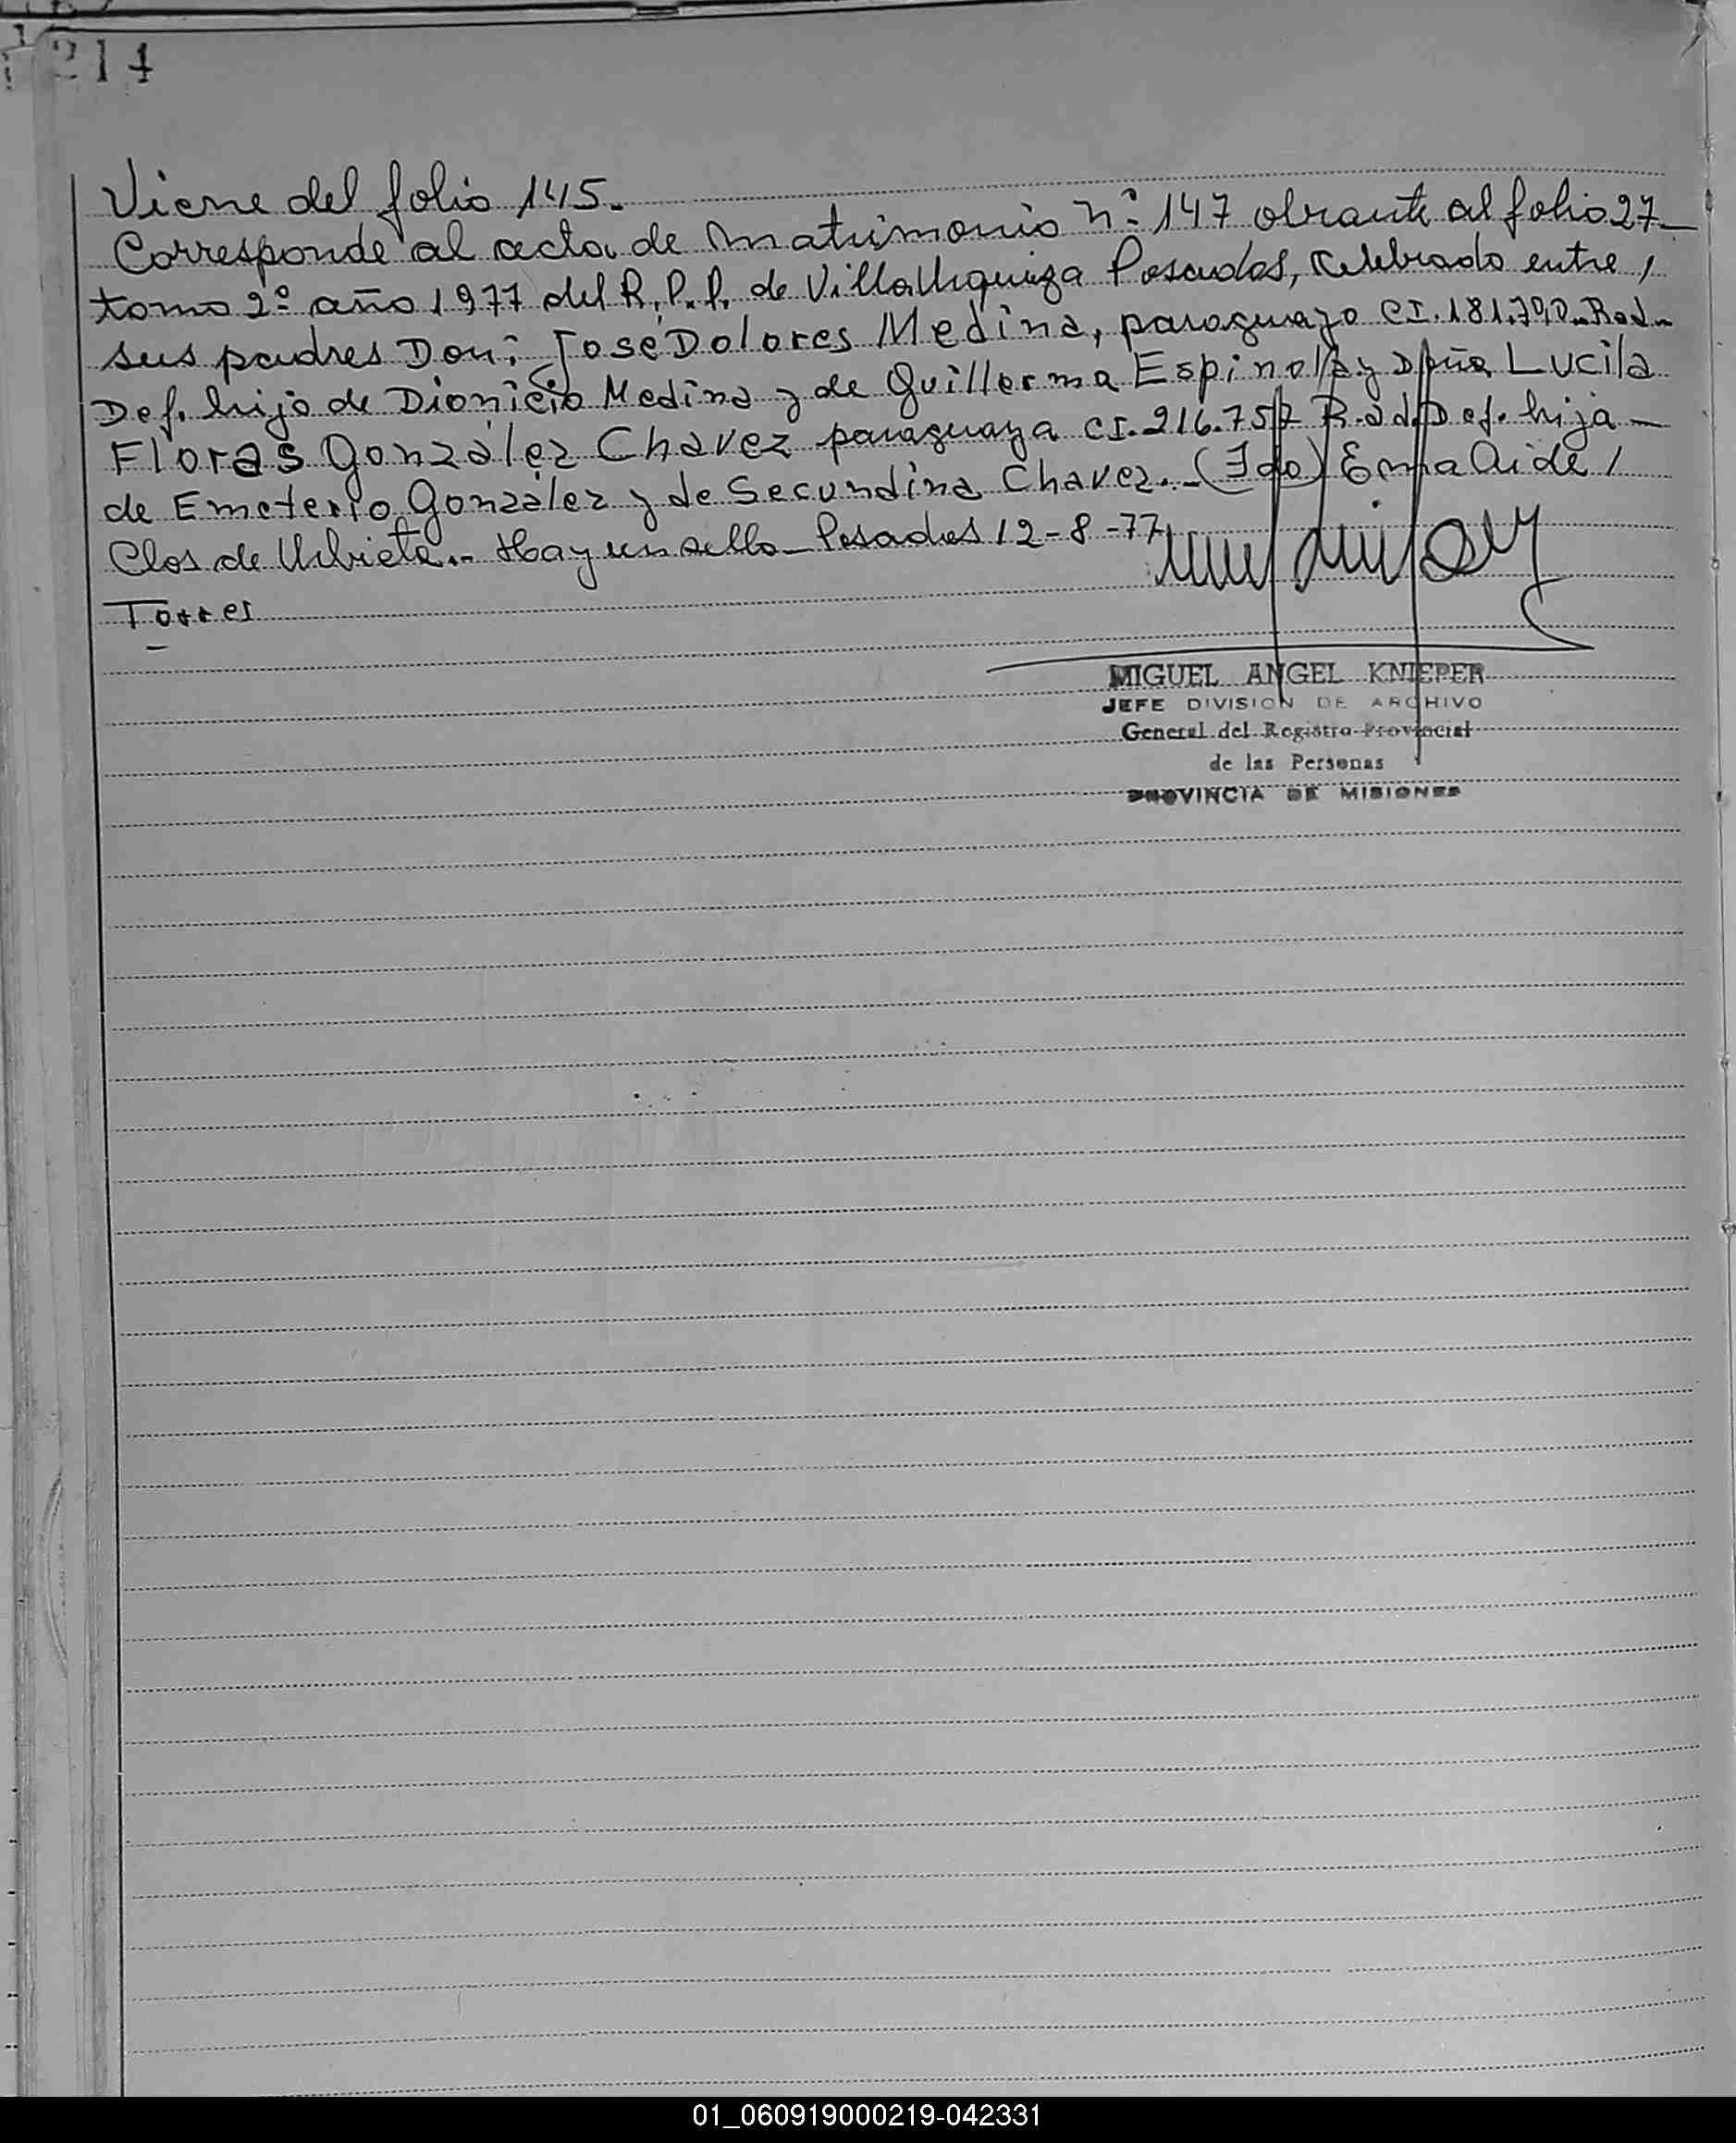 214
Viene del folio 145.
Corresponde al acta de matrimonio n° 147 obrante al folio 27-
tomo 2° año 1977 del R.P.P. de Villa Urquiza Posadas, celebrado entre /
sus padres Don: José Dolores Medina, paraguayo CI. 181.790. Rad.
Def. hijo de Dionicio Medina y de Guillerma Espinola y Doña Lucila
Floras González Chavez paraguaya CI. 216.757 Rad. Def. hija -
de Emeterio González y de Secundina Chavez.- (Fdo) Ema Aide /
Clos de Urbieta.- Hay un sello - Posadas 12-8-77
Torres
MIGUEL ANGEL KNIEPER
JEFE DIVISION DE ARCHIVO
General del Registro Provincial
de las Personas
PROVINCIA DE MISIONES
01_060919000219-042331